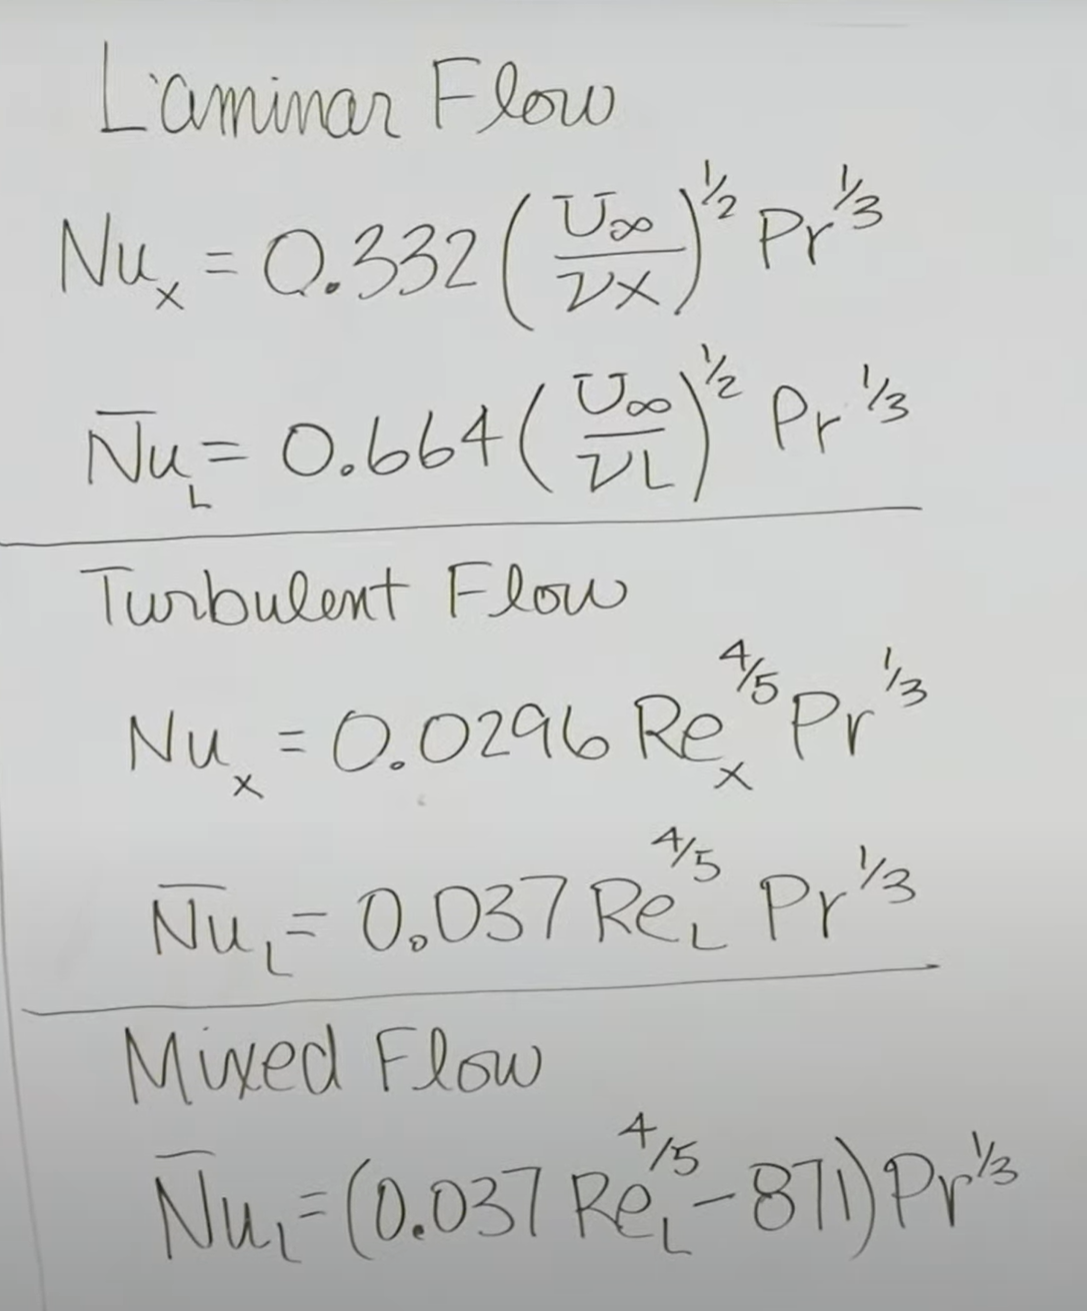 Laminar Flow
Nuₓ = 0.332 (U∞/νx)^1/2 Pr^1/3
N̅u̅_L = 0.664 (U∞/νL)^1/2 Pr^1/3
Turbulent Flow
Nuₓ = 0.0296 Reₓ^4/5 Pr^1/3
N̅u̅_L = 0.037 Re_L^4/5 Pr^1/3
Mixed Flow
N̅u̅_L = (0.037 Re_L^4/5 - 871) Pr^1/3